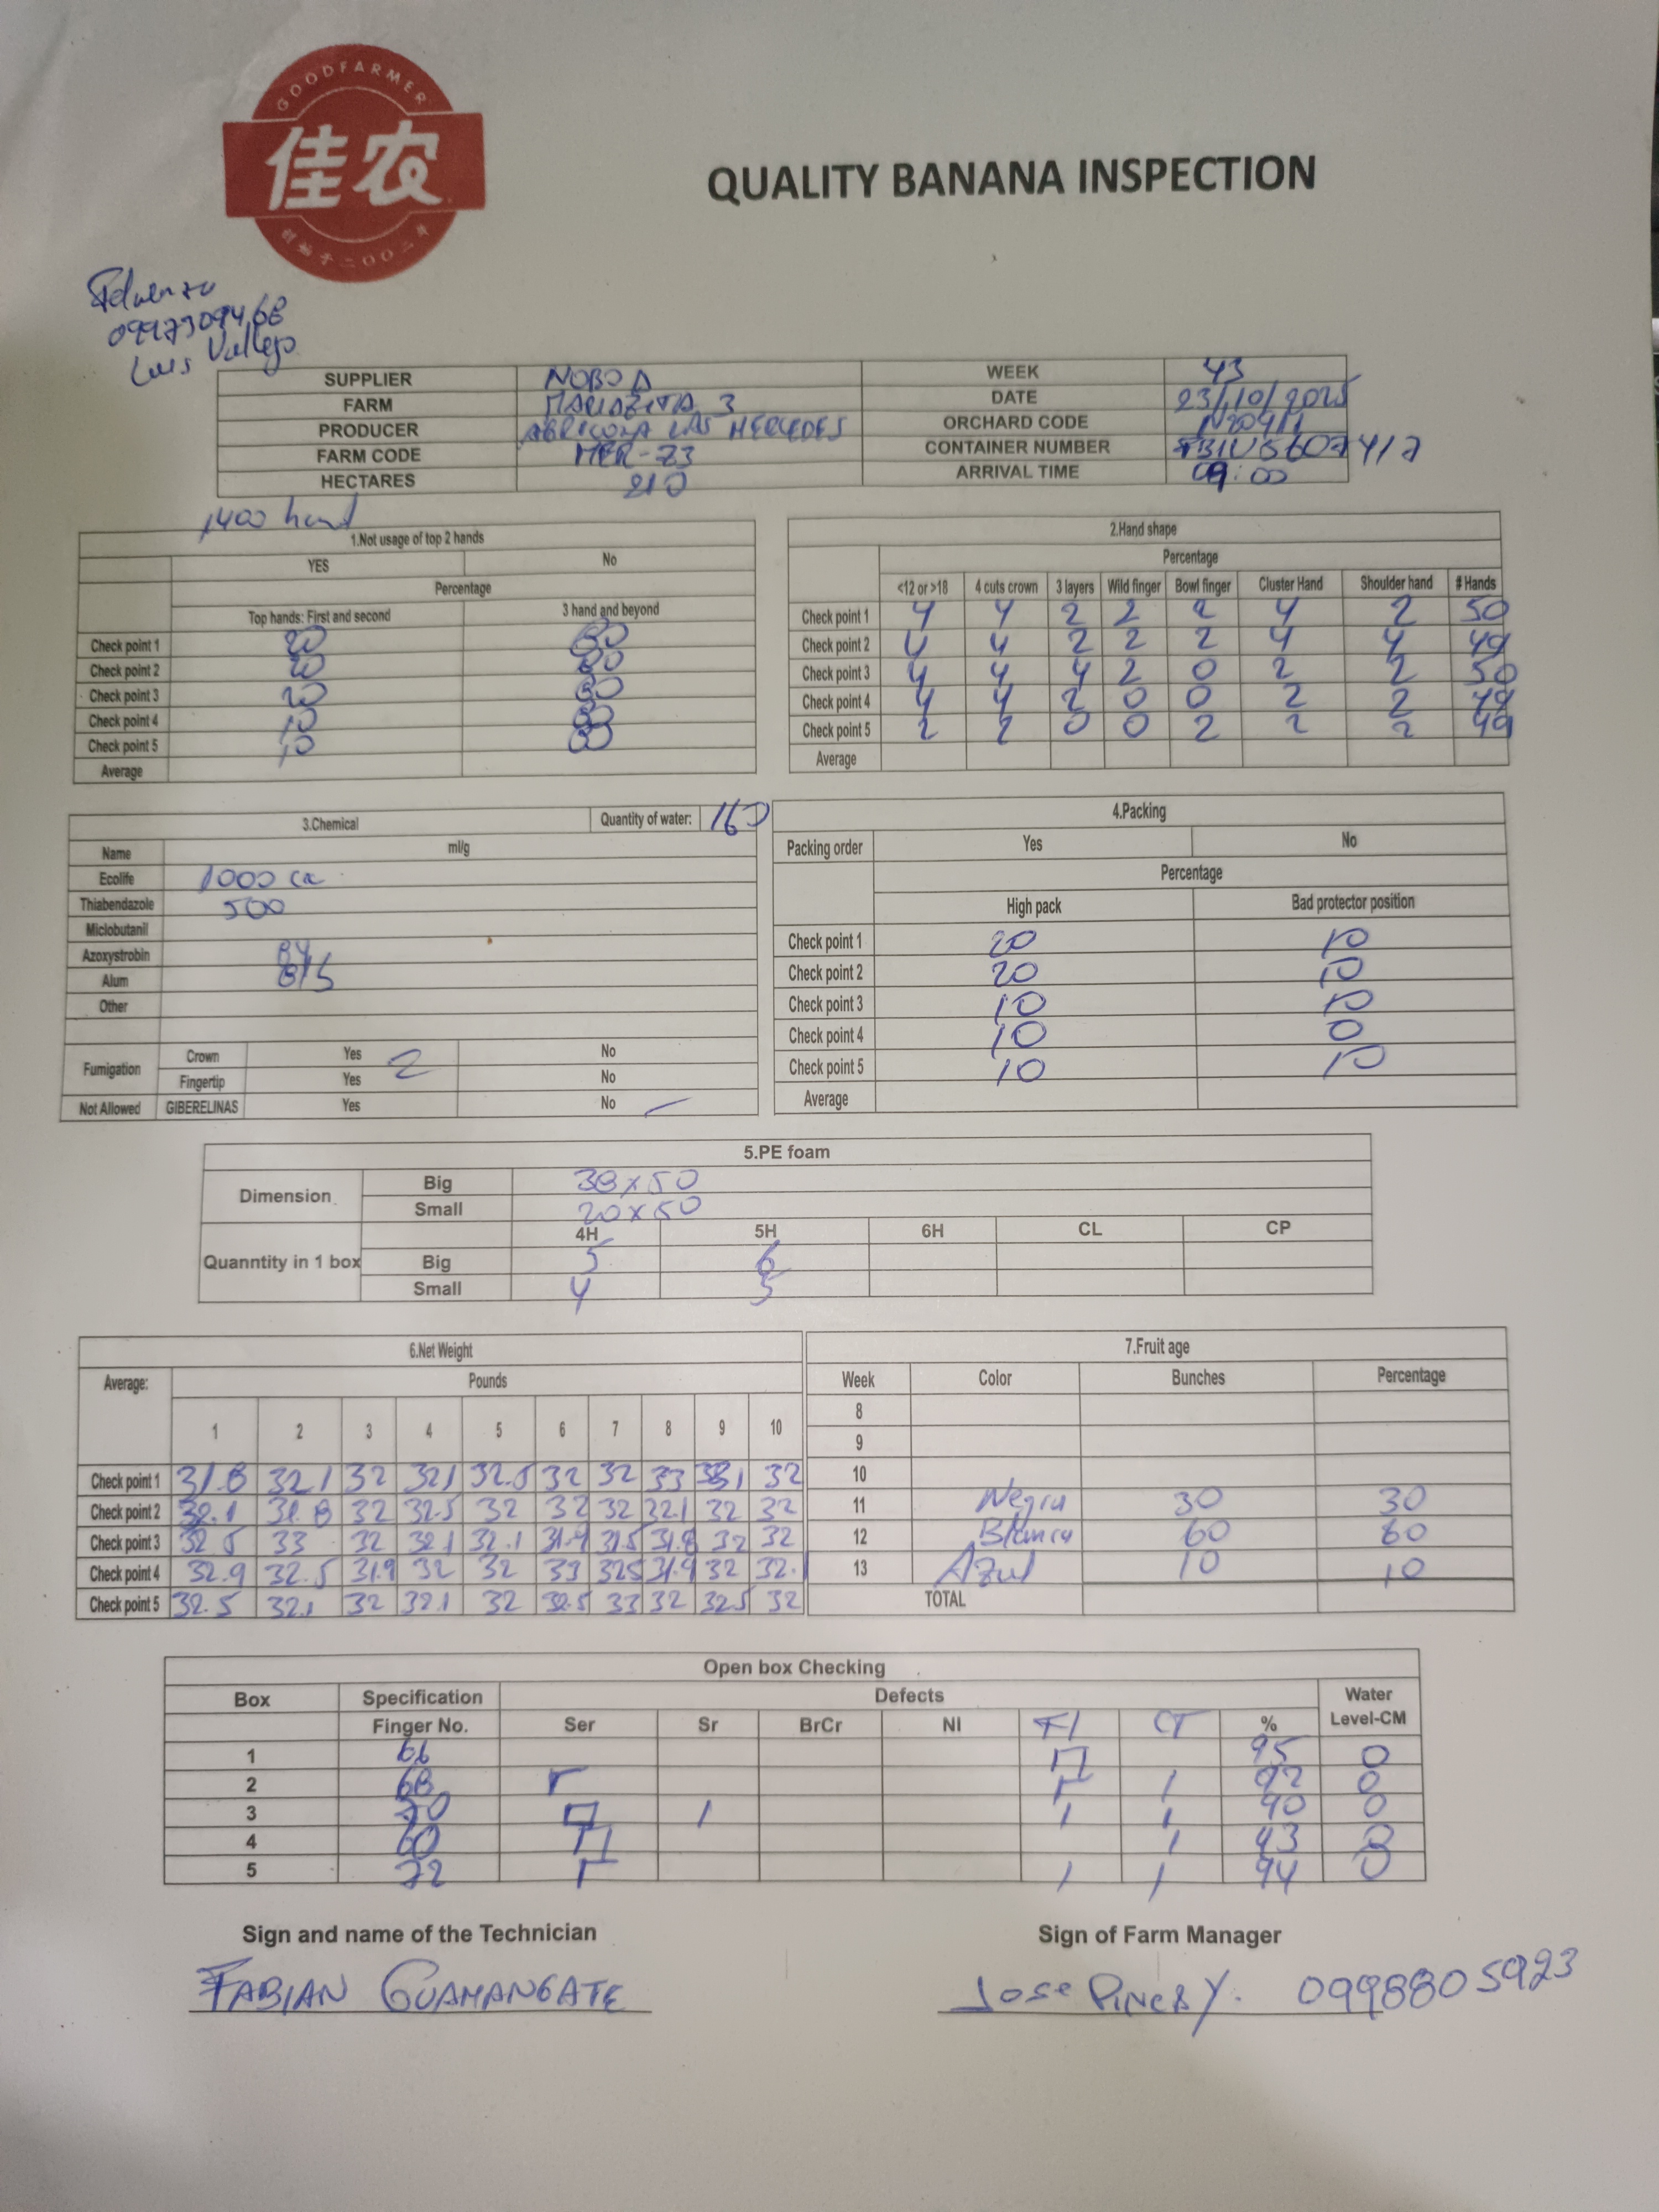 GOODFARMER
佳农
创始于二〇〇二年
QUALITY BANANA INSPECTION
0997309468
Luis Vallejo
SUPPLIER NOBOA WEEK 43
FARM MARIAZITA 3 DATE 23/10/2025
PRODUCER AGRICOLA LAS MERCEDES ORCHARD CODE N20411
FARM CODE MER-Z3 CONTAINER NUMBER
HECTARES 210 ARRIVAL TIME 09:00
1400 hand
1.Not usage of top 2 hands
YES No
Percentage
Top hands: First and second 3 hand and beyond
Check point 1 20 80
Check point 2 20 80
Check point 3 20 80
Check point 4 10
Check point 5 10
Average
2.Hand shape
Percentage
<12 or >18 4 cuts crown 3 layers Wild finger Bowl finger Cluster Hand Shoulder hand # Hands
Check point 1 4 4 2 2 2 4 2 50
Check point 2 4 4 2 2 2 4 4 49
Check point 3 4 4 4 2 0 2 2 50
Check point 4 4 4 2 0 0 2 2 49
Check point 5 2 2 0 0 2 2 2 49
Average
3.Chemical Quantity of water: 160
Name ml/g
Ecolife 1000 cc
Thiabendazole 500
Miclobutanil
Azoxystrobin
Alum
Other
Fumigation Crown Yes No
Fingertip Yes No
Not Allowed GIBERELINAS Yes No
4.Packing
Packing order Yes No
Percentage
High pack Bad protector position
Check point 1 20 10
Check point 2 20 10
Check point 3 10 10
Check point 4 10 0
Check point 5 10 10
Average
5.PE foam
Dimension Big 38x50
Small 20x50
4H 5H 6H CL CP
Quanntity in 1 box Big 5 6
Small 4 5
6.Net Weight
Average: Pounds
1 2 3 4 5 6 7 8 9 10
Check point 1 31.8 32.1 32 32.1 32.5 32 32 33 32
Check point 2 32.1 31.8 32 32.5 32 32 32 32.1 32 32
Check point 3 32.5 33 32 32.1 32.1 31.9 31.5 31.8 32 32
Check point 4 32.9 32.5 31.9 32 32 33 32.5 31.9 32 32.1
Check point 5 32.5 32.1 32 32.1 32 32.5 33 32 32.5 32
7.Fruit age
Week Color Bunches Percentage
8
9
10
11 Negra 30 30
12 Blanca 60 60
13 Azul 10 10
TOTAL
Open box Checking
Box Specification Defects Water
Finger No. Ser Sr BrCr NI FI CT % Level-CM
1 66 95 0
2 68 1 92 0
3 70 1 1 1 90 0
4 60 1 93 0
5 72 1 1 94 0
Sign and name of the Technician Sign of Farm Manager
FABIAN GUAMANGATE Jose Pincay. 0998805923